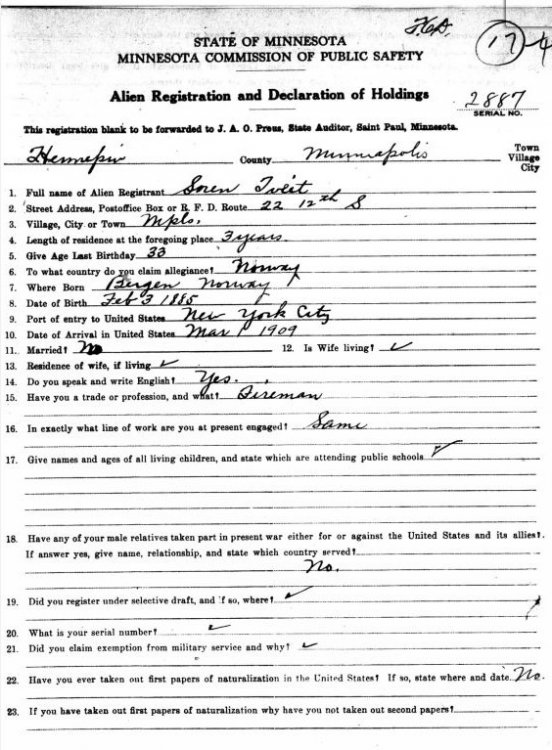 STATE OF MINNESOTA
MINNESOTA COMMISSION OF PUBLIC SAFETY
17 4
Alien Registration and Declaration of Holdings
2887
SERIAL NO.
This registration blank to be forwarded to J. A. O. Preus, State Auditor, Saint Paul, Minnesota.
Hennepin County Minneapolis Town
Village
City
1. Full name of Alien Registrant Soren Tveit
2. Street Address, Postoffice Box or R. F. D. Route 22 12th S
3. Village, City or Town Mpls.
4. Length of residence at the foregoing place 3 years.
5. Give Age Last Birthday 33
6. To what country do you claim allegiance? Norway
7. Where Born Bergen Norway
8. Date of Birth Feb 3 1885
9. Port of entry to United States New York City
10. Date of Arrival in United States Mar 1 1909
11. Married? No 12. Is Wife living? ✓
13. Residence of wife, if living ✓
14. Do you speak and write English? Yes.
15. Have you a trade or profession, and what? Fireman
16. In exactly what line of work are you at present engaged? Same
17. Give names and ages of all living children, and state which are attending public schools ✓
18. Have any of your male relatives taken part in present war either for or against the United States and its allies?
If answer yes, give name, relationship, and state which country served?
No.
19. Did you register under selective draft, and if so, where? ✓
20. What is your serial number? ✓
21. Did you claim exemption from military service and why? ✓
22. Have you ever taken out first papers of naturalization in the United States? If so, state where and date. No.
23. If you have taken out first papers of naturalization why have you not taken out second papers?